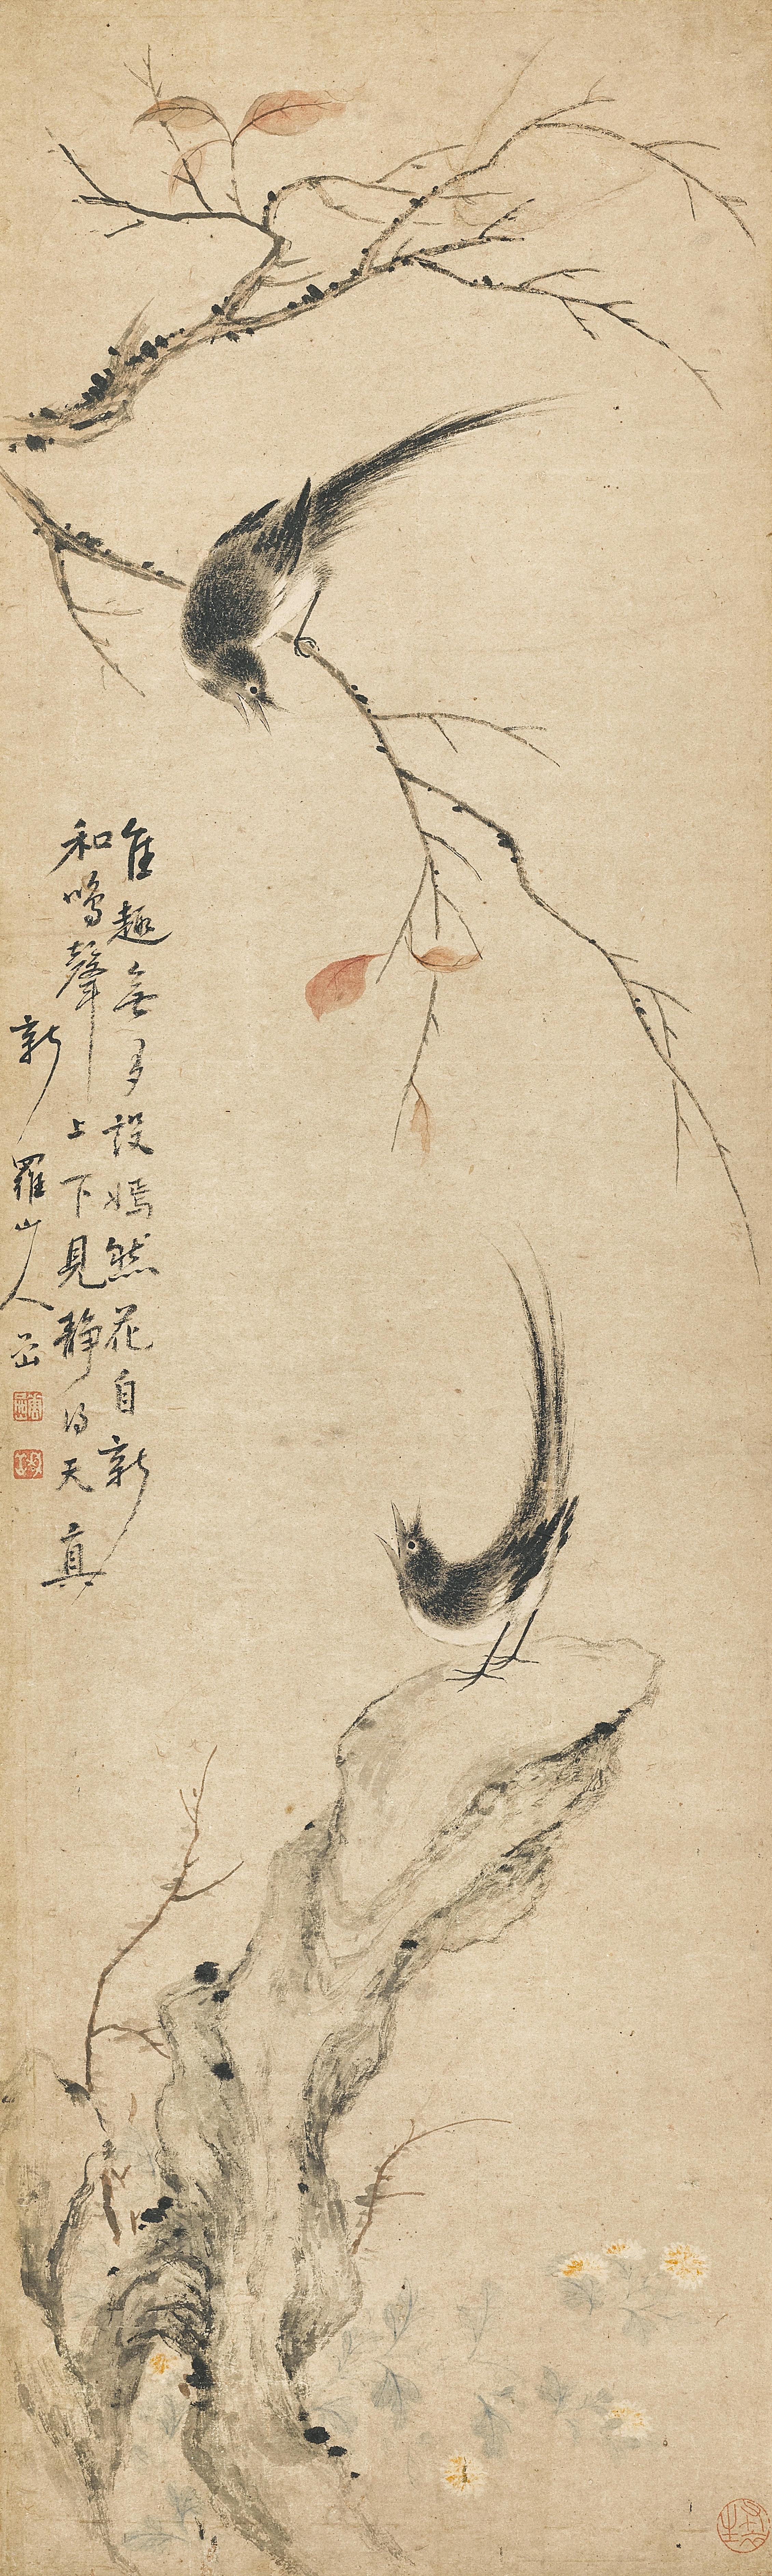 佳趣無多設嫣然花自新
和鳴聲上下見靜得天真
新羅山人嵒